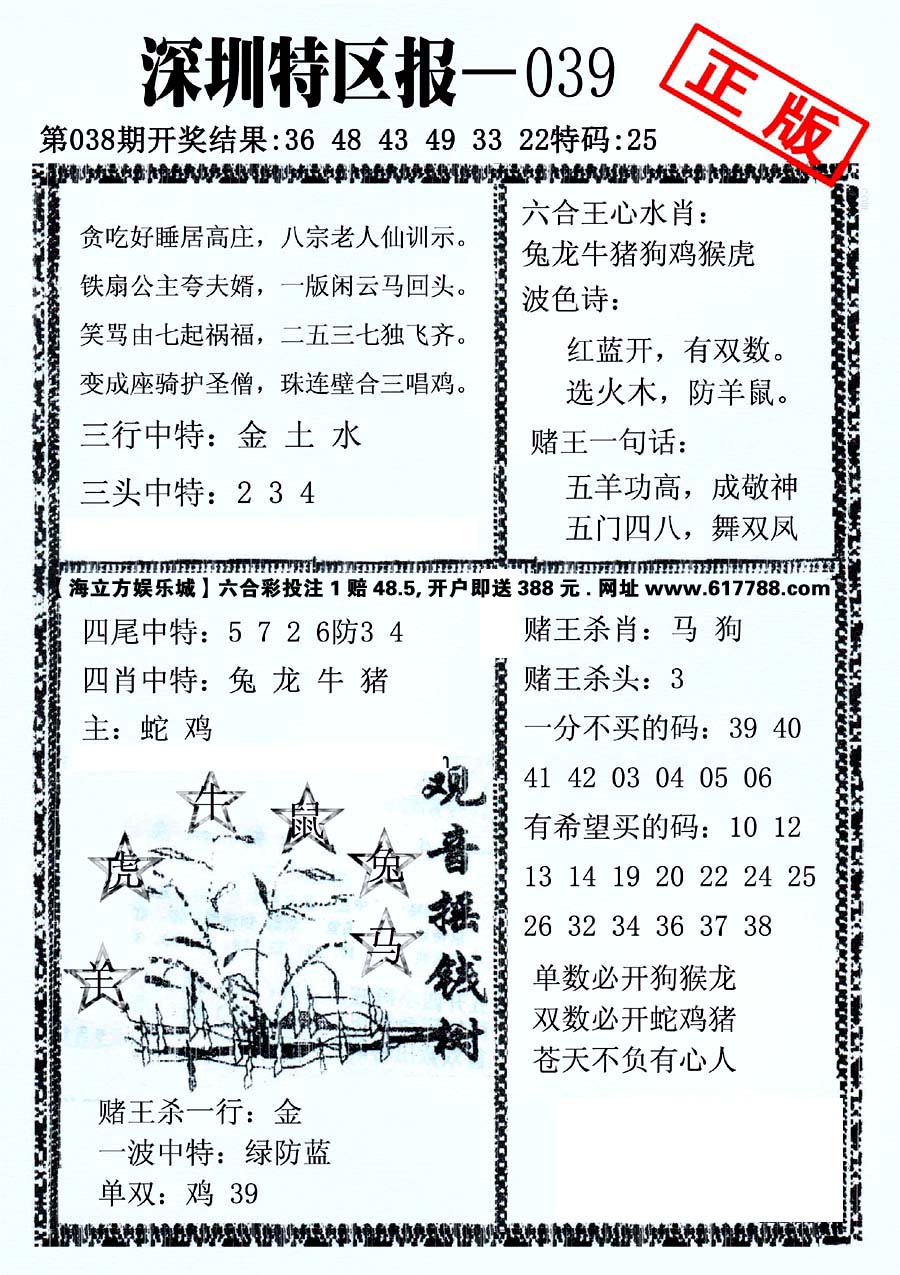 深圳特区报—039
正版
第038期开奖结果:36 48 43 49 33 22特码:25
贪吃好睡居高庄，八宗老人仙训示。
铁扇公主夸夫婿，一版闲云马回头。
笑骂由七起祸福，二五三七独飞齐。
变成座骑护圣僧，珠连壁合三唱鸡。
三行中特：金 土 水
三头中特：2 3 4
六合王心水肖：
兔龙牛猪狗鸡猴虎
波色诗：
红蓝开，有双数。
选火木，防羊鼠。
赌王一句话：
五羊功高，成敬神
五门四八，舞双凤
【海立方娱乐城】六合彩投注 1 赔 48.5, 开户即送 388 元 . 网址 www.617788.com
四尾中特：5 7 2 6防3 4
四肖中特：兔 龙 牛 猪
主：蛇 鸡
观音摇钱树
牛
鼠
虎
兔
马
羊
赌王杀一行：金
一波中特：绿防蓝
单双：鸡 39
赌王杀肖：马 狗
赌王杀头：3
一分不买的码：39 40
41 42 03 04 05 06
有希望买的码：10 12
13 14 19 20 22 24 25
26 32 34 36 37 38
单数必开狗猴龙
双数必开蛇鸡猪
苍天不负有心人